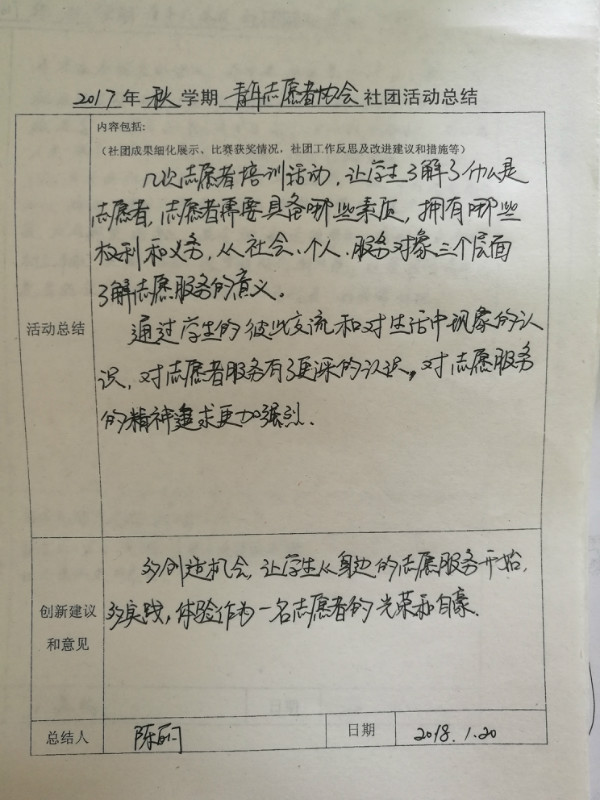 2017年秋学期青年志愿者协会社团活动总结
内容包括:
(社团成果细化展示、比赛获奖情况、社团工作反思及改进建议和措施等)
几次志愿者培训活动，让学生了解了什么是
志愿者，志愿者需要具备哪些素质，拥有哪些
权利和义务，从社会、个人、服务对象三个层面
了解志愿服务的意义。
活动总结
通过学生的彼此交流和对生活中现象的认
识，对志愿者服务有了更深的认识，对志愿服务
的精神追求更加强烈.
创新建议
和意见
多创造机会，让学生从身边的志愿服务开始，
多实践，体验作为一名志愿者的光荣和自豪.
总结人 陈丽 日期 2018.1.20